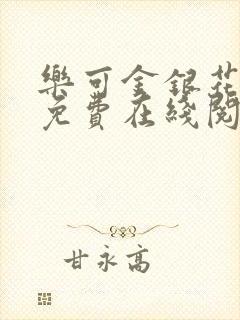 樂可金銀花
免費在綫閱
甘永高